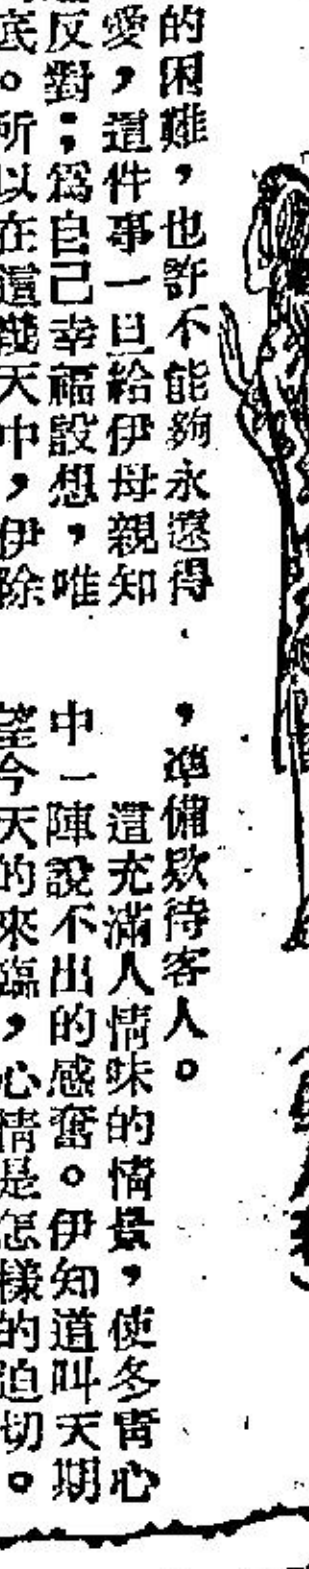 的困難，也許不能夠永遠得
愛，這件事一旦給伊母親知
反對；為自己幸福設想，唯
底。所以在這幾天中，伊除
，準備欵待客人。
這充滿人情味的情景，使冬青心
中一陣說不出的感奮。伊知道叫天期
望今天的來臨，心情是怎樣的迫切。